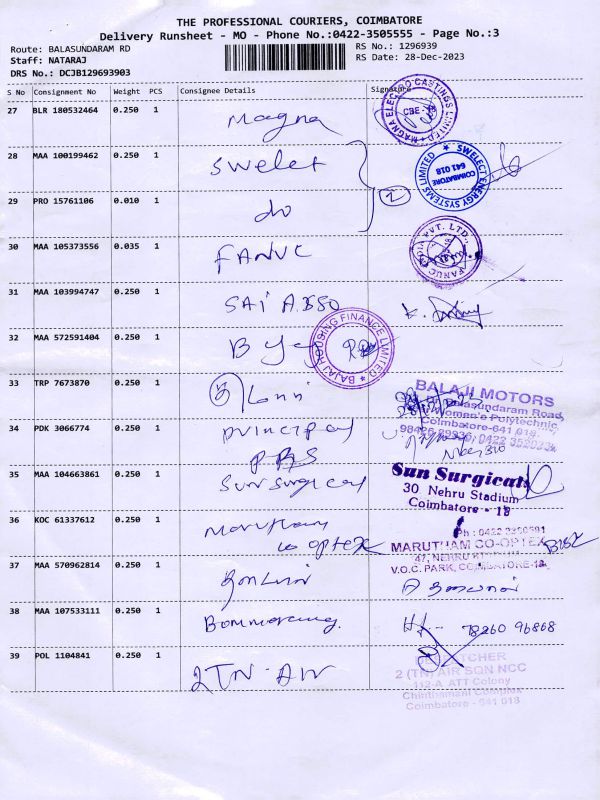 THE PROFESSIONAL COURIERS, COIMBATORE
Delivery Runsheet - MO - Phone No.:0422-3505555 - Page No.:3
Route: BALASUNDARAM RD
RS No.: 1296939
Staff: NATARAJ
RS Date: 28-Dec-2023
DRS No.: DCJB129693903
S No Consignment No Weight PCS Consignee Details Signature
27 BLR 180532464 0.250 1 Magna
MAGNA ELECTRO CASTINGS LIMITED
CBE
28 MAA 100199462 0.250 1 Swelet
SWELECT ENERGY SYSTEMS LIMITED
COIMBATORE
641 018
29 PRO 15761106 0.010 1 do
2
30 MAA 105373556 0.035 1 FANUC
FANUC INDIA PVT. LTD.
31 MAA 103994747 0.250 1 SAI ASSO
32 MAA 572591404 0.250 1
BAJAJ HOUSING FINANCE LIMITED
33 TRP 7673870 0.250 1
BALAJI MOTORS
Balasundaram Road,
Women's Polytechnic,
Coimbatore-641 018
34 PDK 3066774 0.250 1 principal
35 MAA 104663861 0.250 1 Sun surgical
Sun Surgicals
30 Nehru Stadium
Coimbatore - 18
36 KOC 61337612 0.250 1 Marutham
co optex
MARUTHAM CO-OPTEX
V.O.C. PARK, COIMBATORE-18.
37 MAA 570962814 0.250 1
38 MAA 107533111 0.250 1
78260 96868
39 POL 1104841 0.250 1 2TN-AIR
2 (TN) AIR SQN NCC
112-A, ATT Colony
Chinthamani Complex
Coimbatore - 641 018